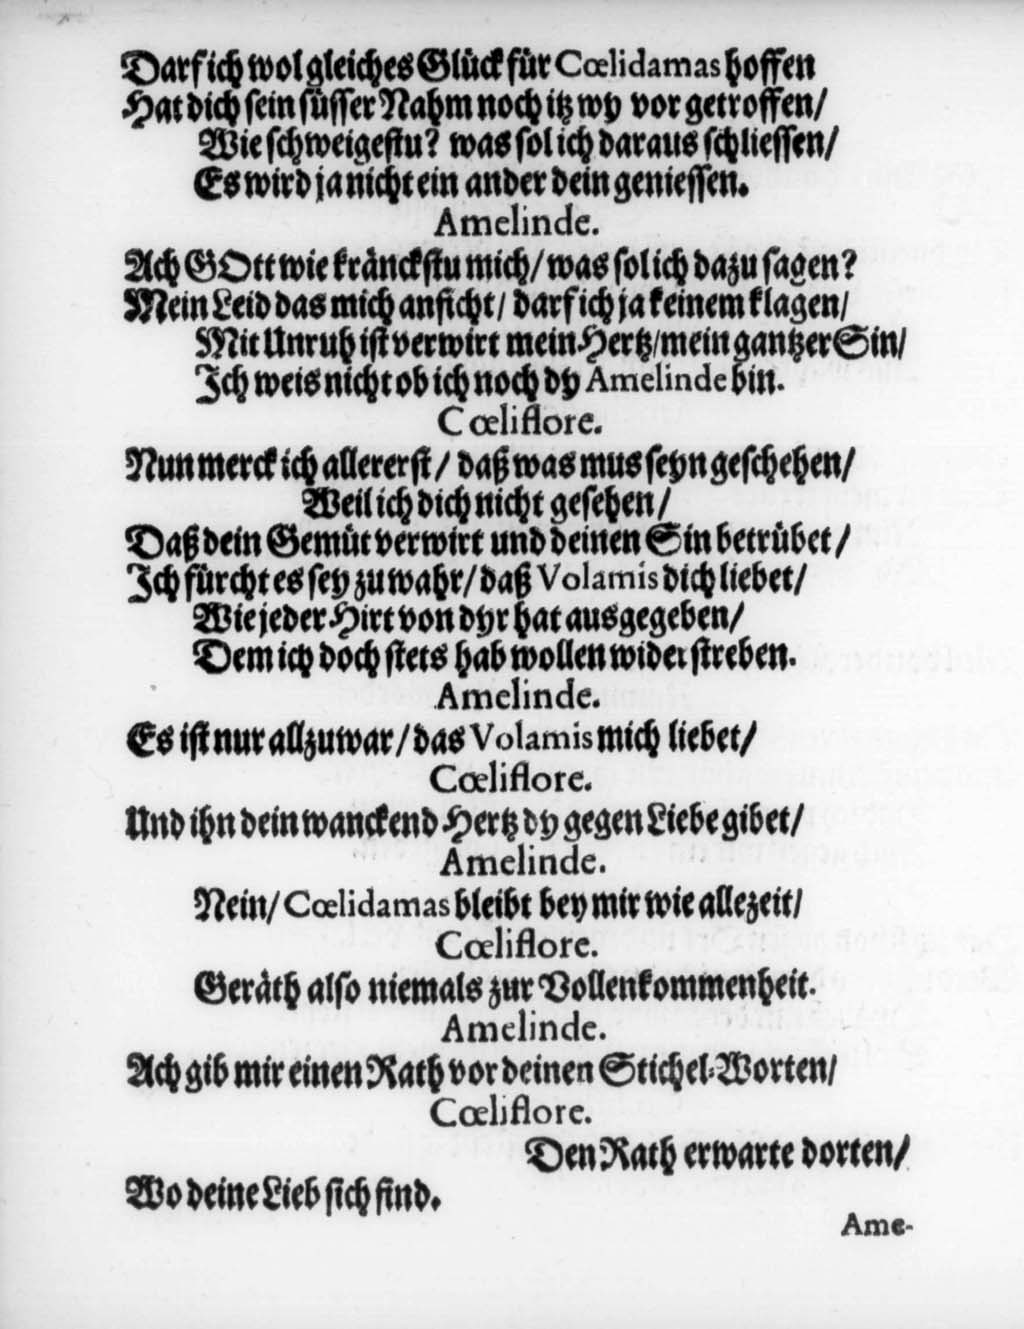 Darf ich wol gleiches Glück für Cœlidamas hoffen
Hat dich sein süsser Nahm noch itz wy vor getroffen/
Wie schweigestu? was sol ich daraus schliessen/
Es wird ja nicht ein ander dein geniessen.
Amelinde.
Ach GOtt wie kränckstu mich/ was sol ich dazu sagen?
Mein Leid das mich anficht/ darf ich ja keinem klagen/
Mit Unruh ist verwirt mein Hertz/ mein gantzer Sin/
Ich weis nicht ob ich noch dy Amelinde bin.
Cœliflore.
Nun merck ich allererst/ daß was mus seyn geschehen/
Weil ich dich nicht gesehen/
Daß dein Gemüt verwirt und deinen Sin betrübet/
Ich fürcht es sey zu wahr/ daß Volamis dich liebet/
Wie jeder Hirt von dyr hat ausgegeben/
Dem ich doch stets hab wollen widerstreben.
Amelinde.
Es ist nur allzuwar/ das Volamis mich liebet/
Cœliflore.
Und ihn dein wanckend Hertz dy gegen Liebe gibet/
Amelinde.
Nein/ Cœlidamas bleibt bey mir wie allezeit/
Cœliflore.
Geräth also niemals zur Vollenkommenheit.
Amelinde.
Ach gib mir einen Rath vor deinen Stichel-Worten/
Cœliflore.
Den Rath erwarte dorten/
Wo deine Lieb sich find.
Ame-